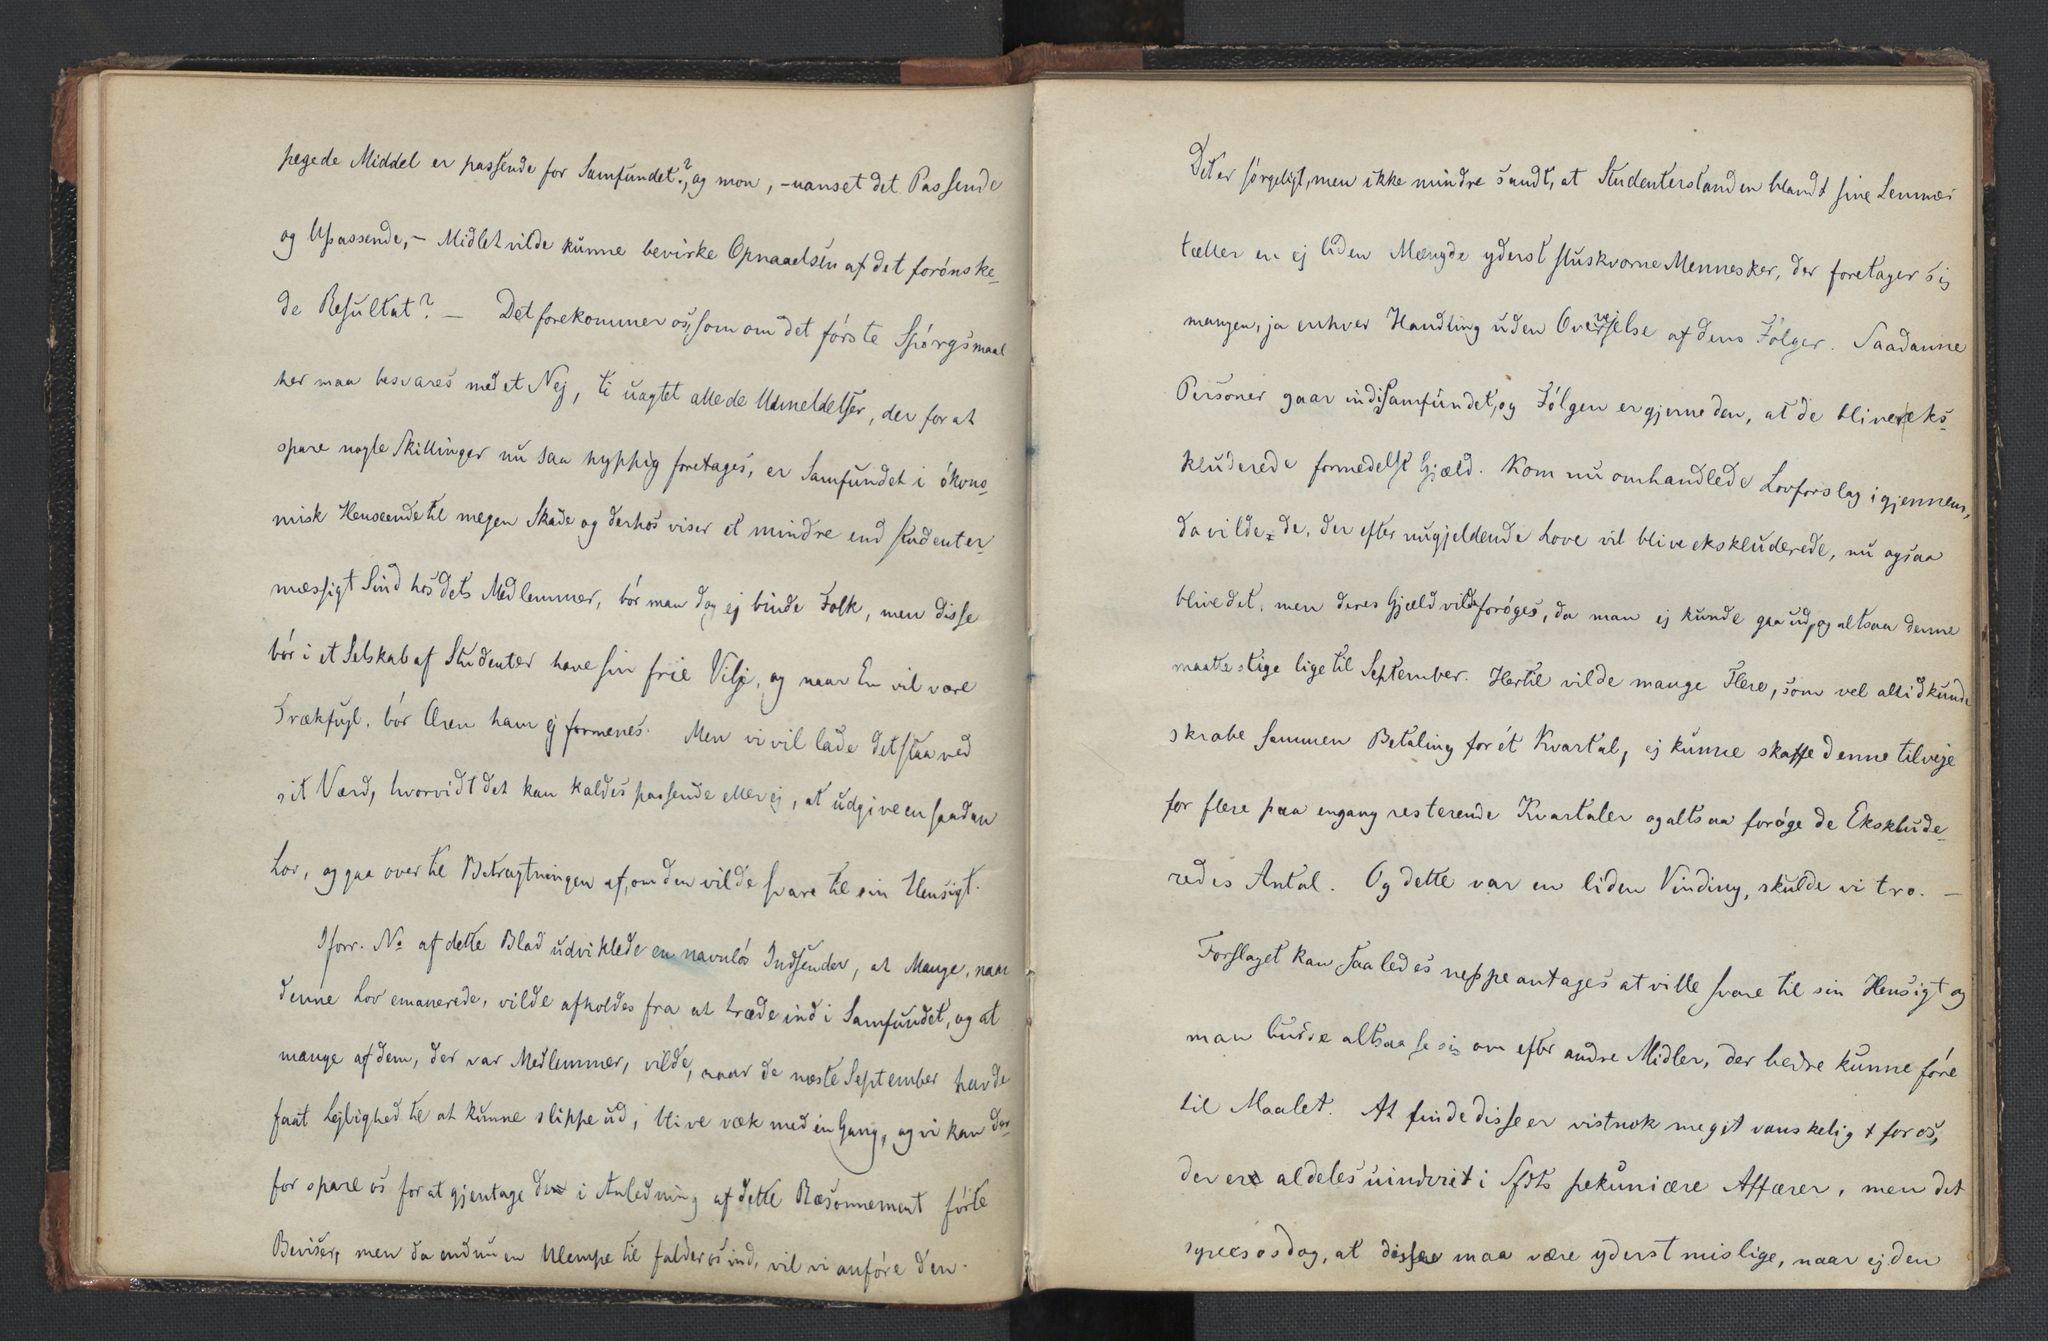 pegede Middel er passende for Samfundet?, og mon, – uanset det Passende
og Upassende, – Midlet vilde kunne bevirke Opnaaelsen af det forønske-
de Resultat? – Det forekommer os, som om det første Spørgsmaal
her maa besvares med et Nej, ti uagtet alle de Udmeldelser, der for at
spare nogle Skillinger nu saa hyppig foretages, er Samfundet i økono-
misk Henseende til megen Skade og derhos viser et mindre end Student-
mæssigt Sind hos dets Medlemmer, bør man dog ej binde Folk, men disse
bør i et Selskab af Studenter have sin frie Vilje, og naar En vil være
Trækfugl, bør Æren ham ej formenes. Men vi vil lade det staa ved
sit Værd, hvorvidt det kan kaldes passende eller ej, at udgive en saadan
Lov, og gaa over til Betragtningen af, om den vilde svare til sin Hensigt.
I forr. No af dette Blad udviklede en navnløs Indsender, at Mange, naar
denne Lov emanerede, vilde afholdes fra at træde ind i Samfundet, og at
mange af dem, der var Medlemmer, vilde, naar de næste September havde
faat Lejlighed til at kunne slippe ud, blive væk med én Gang, og vi kan der-
for spare os for at gjentage de i Anledning af dette Ræsonnement førte
Beviser, men da endnu en Ulempe til falder os ind, vil vi anføre den.
Det er sørgeligt, men ikke mindre sandt, at Studenterstanden blandt sine Lemmer
tæller en ej liden Mængde yderst sluskvorne Mennesker, der foretager sig
mangen, ja enhver Handling uden Overvejelse af dens Følger. Saadanne
Personer gaar ind i Samfundet, og Følgen er gjerne den, at de bliver eks-
kluderede formedelst Gjæld. Kom nu omhandlede Lovforslag igjennem,
da vilde de, der efter nugjeldende Love vil blive ekskluderede, nu ogsaa
blive det, men deres Gjæld vilde forøges, da man ej kunde gaa ud, og altsaa denne
maatte stige lige til September. Hertil vilde mange Flere, som vel altid kunde
skrabe sammen Betaling for ét Kvartal, ej kunne skaffe denne tilveje
for flere paa engang resterende Kvartaler og altsaa forøge de Eksklude-
redes Antal. Og dette var en liden Vinding, skulde vi tro. –
Forslaget kan saaledes neppe antages at ville svare til sin Hensigt og
man burde altsaa se sig om efter andre Midler, der bedre kunne føre
til Maalet. At finde disse er vistnok meget vanskeligt for os,
der er aldeles uindviet i Sfdts pekuniære Affærer, men det
synes os dog, at disse maa være yderst mislige, naar ej den